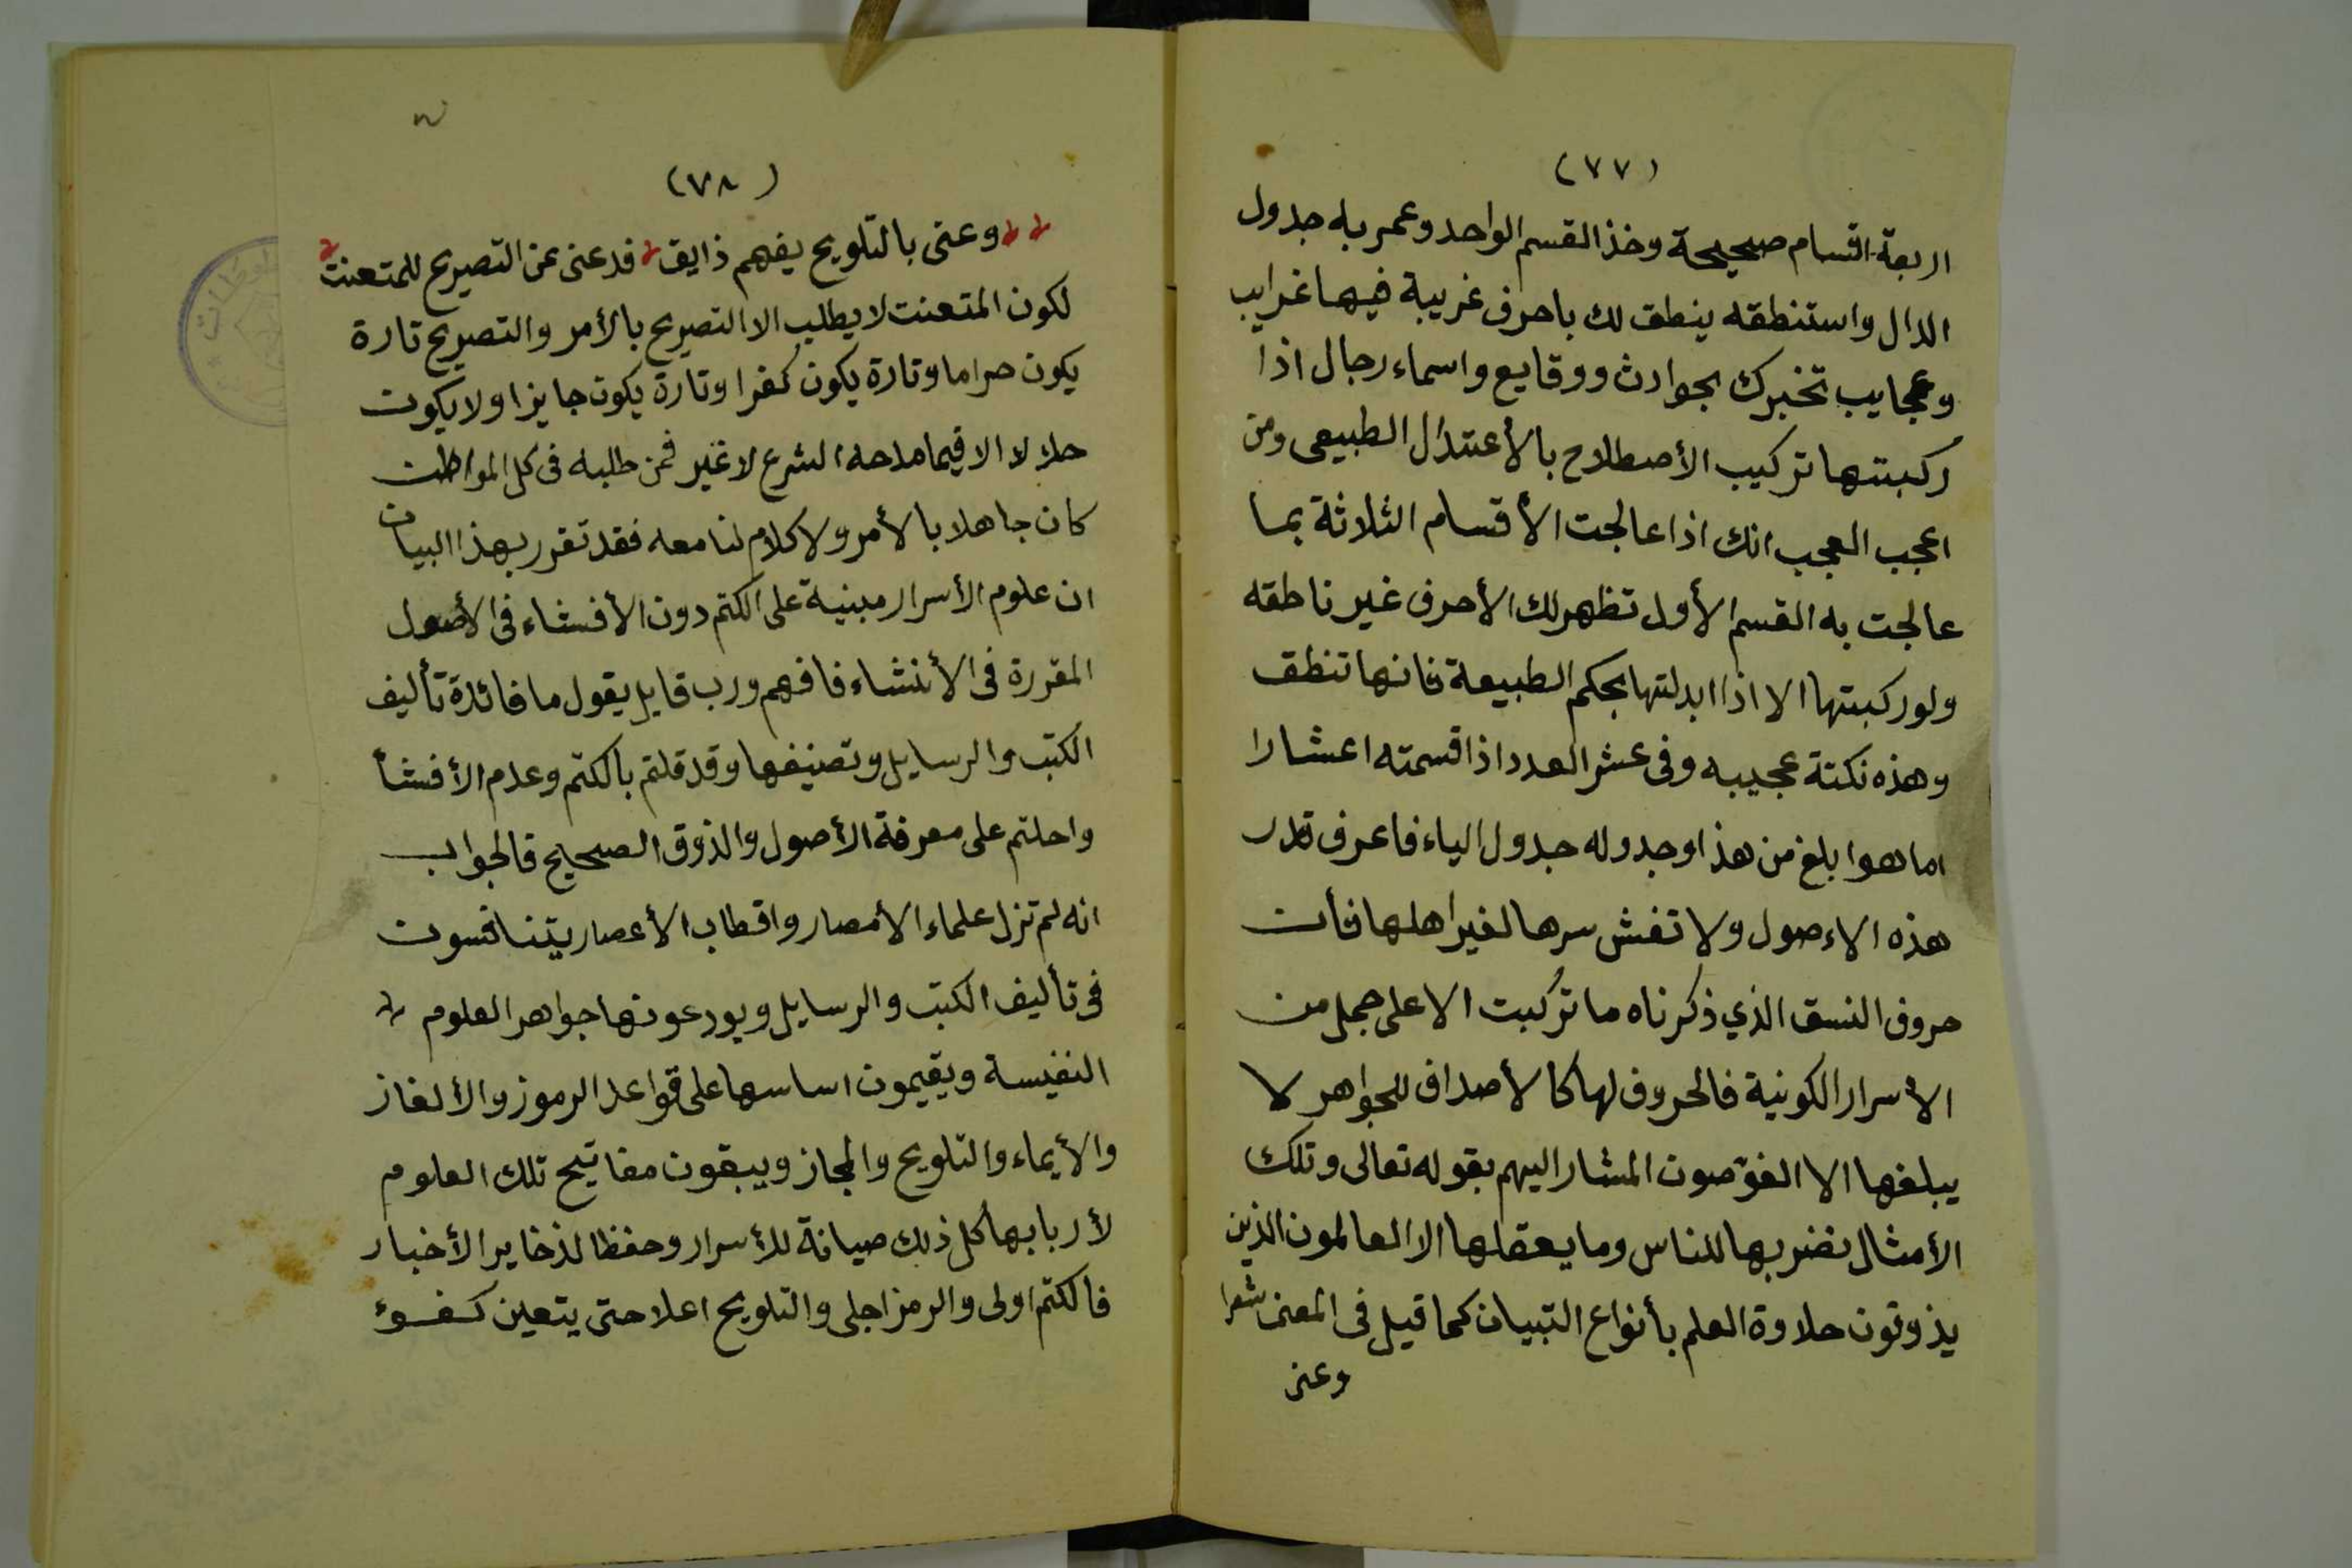 (٧٧)
اربعة اقسام صحيحة وخذ القسم الواحد وعمر به جدول
الدال واستنطقه ينطق لك باحرف غريبة فيها غرايب
وعجايب تخبرك بحوادث ووقايع واسماء رجال اذا
ركبتها تركيب الأصطلاح بالأعتدال الطبيعى ومن
اعجب العجب انك اذا عالجت الأقسام الثلاثة بما
عالجت به القسم الأول تظهر لك الأحرف غير ناطقه
ولو ركبتها الا اذا ابدلتها بحكم الطبيعة فانها تنطق
وهذه نكتة عجيبه وفى عشر العدد اذا قسمته اعشارا
اما هو ابلغ من هذا وجدوله جدول الياء فاعرف قدر
هذه الاءصول ولا تفش سرها لغير اهلها فأن
حروف النسق الذي ذكرناه ما تركبت الا على جمل من
الأسرار الكونية فالحروف لها كالأصداف للجواهر لا
يبلغها الا الغوّصون المشار اليهم بقوله تعالى وتلك
الأمثال نضربها للناس وما يعقلها الا العالمون الذين
يذوقون حلاوة العلم بأنواع التبيان كما قيل فى المعنى شعرا
وعنى
(٧٨)
وعنى بالتلويح يفهم ذايق فدعنى عن التصريح للمتعنت
لكون المتعنت لا يطلب الا التصريح بالأمر والتصريح تارة
يكون حراما وتارة يكون كفرا وتارة يكون جايزا ولا يكون
حلالا الا فيما مدحه الشرع لا غير فمن طلبه فى كل المواطن
كان جاهلا بالأمر ولا كلام لنا معه فقد تقرر بهذا البيان
ان علوم الأسرار مبنية على الكتم دون الأفشاء فى الأصول
المقررة فى الأنشاء فافهم ورب قايل يقول ما فائدة تأليف
الكتب والرسايل وتصنيفها وقد قلتم بالكتم وعدم الأفشأ
واحلتم على معرفة الأصول والذوق الصحيح فالجواب
انه لم تزل علماء الأمصار واقطاب الأعصار يتنافسون
فى تأليف الكتب والرسايل ويودعونها جواهر العلوم
النفيسة ويقيمون اساسها على قواعد الرموز والألغاز
والأيماء والتلويح والمجاز ويبقون مفاتيح تلك العلوم
لأربابها كل ذلك صيانة للأسرار وحفظا لذخاير الأخبار
فالكتم اولى والرمز اجلى والتلويح اعلا حتى يتعين كفوء